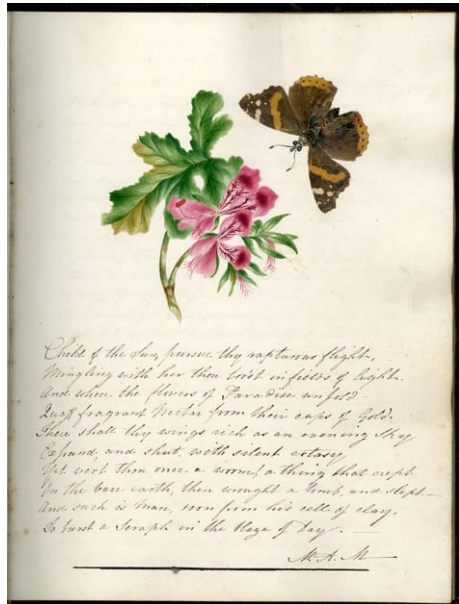 Child of the Sun, pursue thy rapturous flight,
Mingling with her thou lov'st in fields of light.
And where the flowers of Paradise unfold
Quaff fragrant Nectar from their cups of Gold.
There shall thy wings rich as an evening Sky
Expand, and shut, with silent extasy
Yet wert thou once a worm, a thing that crept
On the bare earth, then wrought a tomb, and slept—
And such is Man, soon from his cell of clay,
To burst a Seraph in the blaze of Day.—
M. A. M